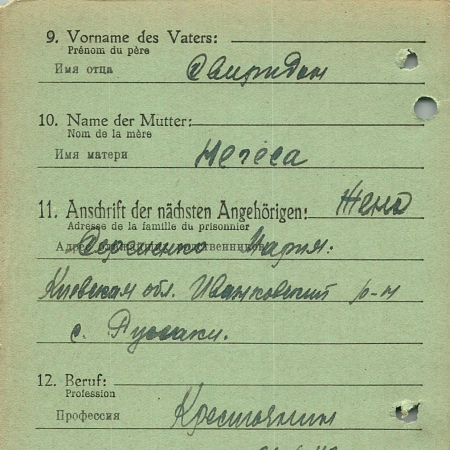 9. Vorname des Vaters:
Prénom du père
Имя отца Свиридон
10. Name der Mutter:
Nom de la mère
Имя матери
11. Anschrift der nächsten Angehörigen: Жена
Adresse de la famille du prisonnier
Мария:
Киевская обл. Иванковский р-н
с.
12. Beruf:
Profession
Профессия Крестьянин